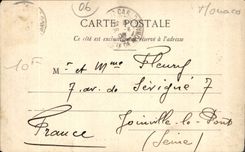 06
Monaco
CARTE POSTALE
Ce côté est exclusivement réservé à l'adresse
10F
M. et Mme Fleury
7. av. de Sévigné 7
Joinville-le-Pont
France (Seine)